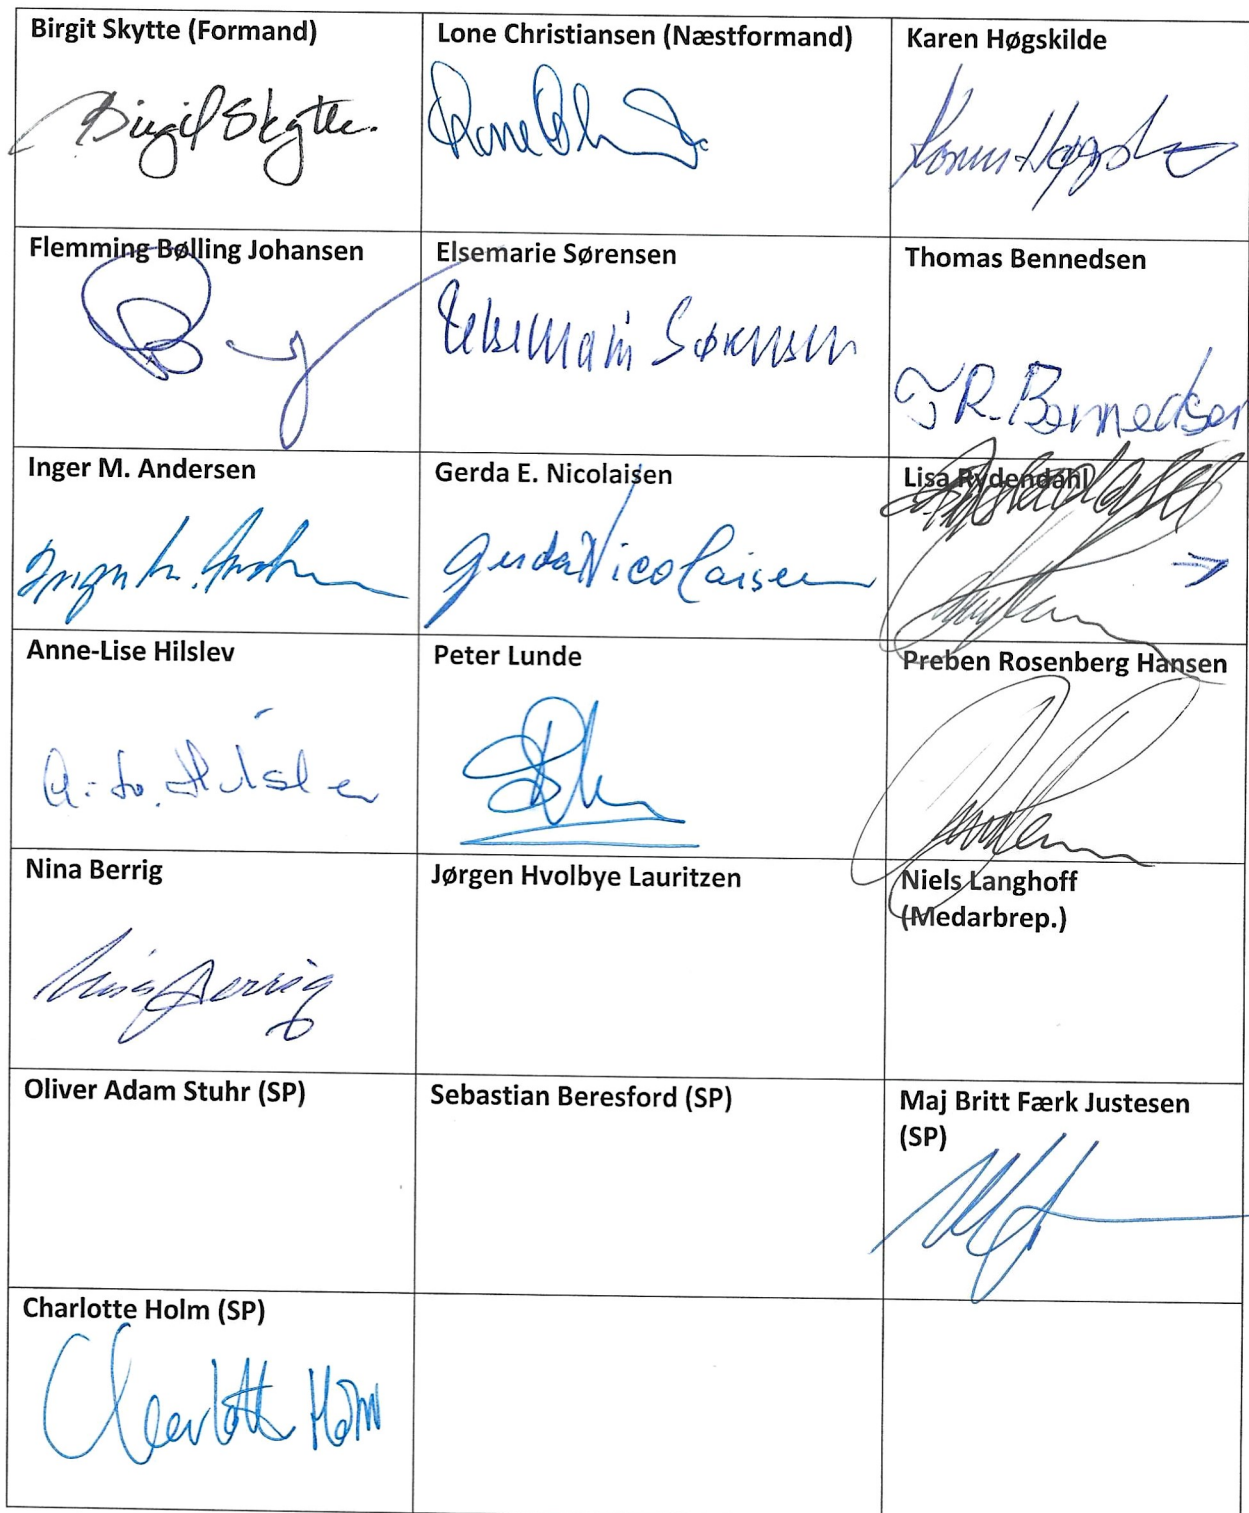 Birgit Skytte (Formand)
Birgit Skytte.
Lone Christiansen (Næstformand)
Karen Høgskilde
Flemming Bølling Johansen
Elsemarie Sørensen
Elsemarie Sørensen
Thomas Bennedsen
R. Bennedsen
Inger M. Andersen
Inger M.
Gerda E. Nicolaisen
Gerda Nicolaisen
Lisa Rydendahl
→
Anne-Lise Hilslev
Hilslev
Peter Lunde
Preben Rosenberg Hansen
Nina Berrig
Nina Berrig
Jørgen Hvolbye Lauritzen
Niels Langhoff
(Medarbrep.)
Oliver Adam Stuhr (SP)
Sebastian Beresford (SP)
Maj Britt Færk Justesen
(SP)
Charlotte Holm (SP)
Charlotte Holm